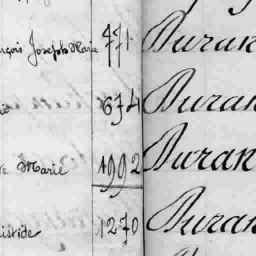 nçois Joseph Marie 471 Duran
674 Duran
Marie 1992 Duran
istide 1270 Duran